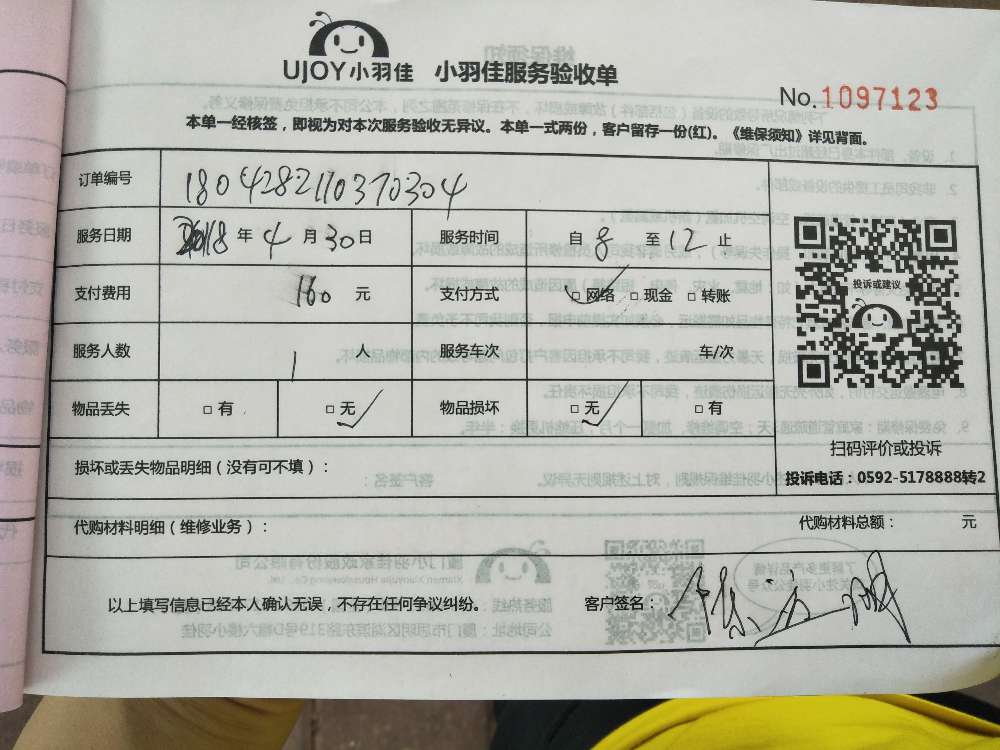 UJOY小羽佳 小羽佳服务验收单
No.1097123
本单一经核签，即视为对本次服务验收无异议。本单一式两份，客户留存一份(红)。《维保须知》详见背面。
订单编号 180428211037030​4
服务日期 2018年4月30日 服务时间 自8至12止
支付费用 160元 支付方式 □网络 □现金 □转账
服务人数 1人 服务车次 车/次
物品丢失 □有 □无 物品损坏 □无 □有
投诉或建议
扫码评价或投诉
投诉电话：0592-5178888转2
损坏或丢失物品明细（没有可不填）：
代购材料明细（维修业务）： 代购材料总额： 元
以上填写信息已经本人确认无误，不存在任何争议纠纷。 客户签名：